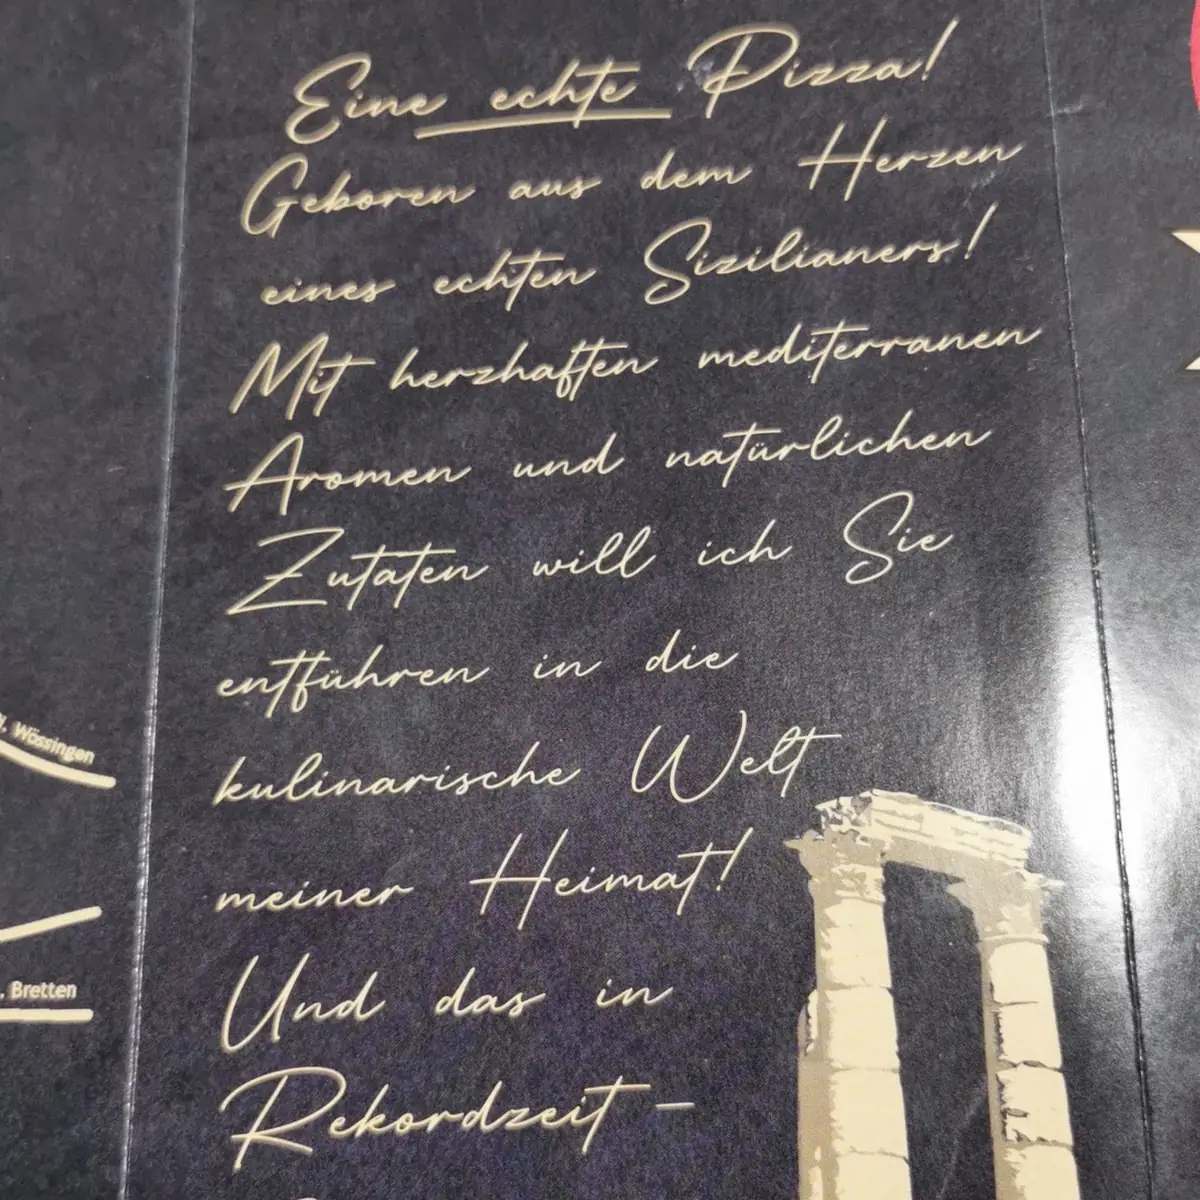 Eine echte Pizza!
Geboren aus dem Herzen
eines echten Sizilianers!
Mit herzhaften mediterranen
Aromen und natürlichen
Zutaten will ich Sie
entführen in die
kulinarische Welt
meiner Heimat!
Und das in
Rekordzeit –
Wössingen
Bretten